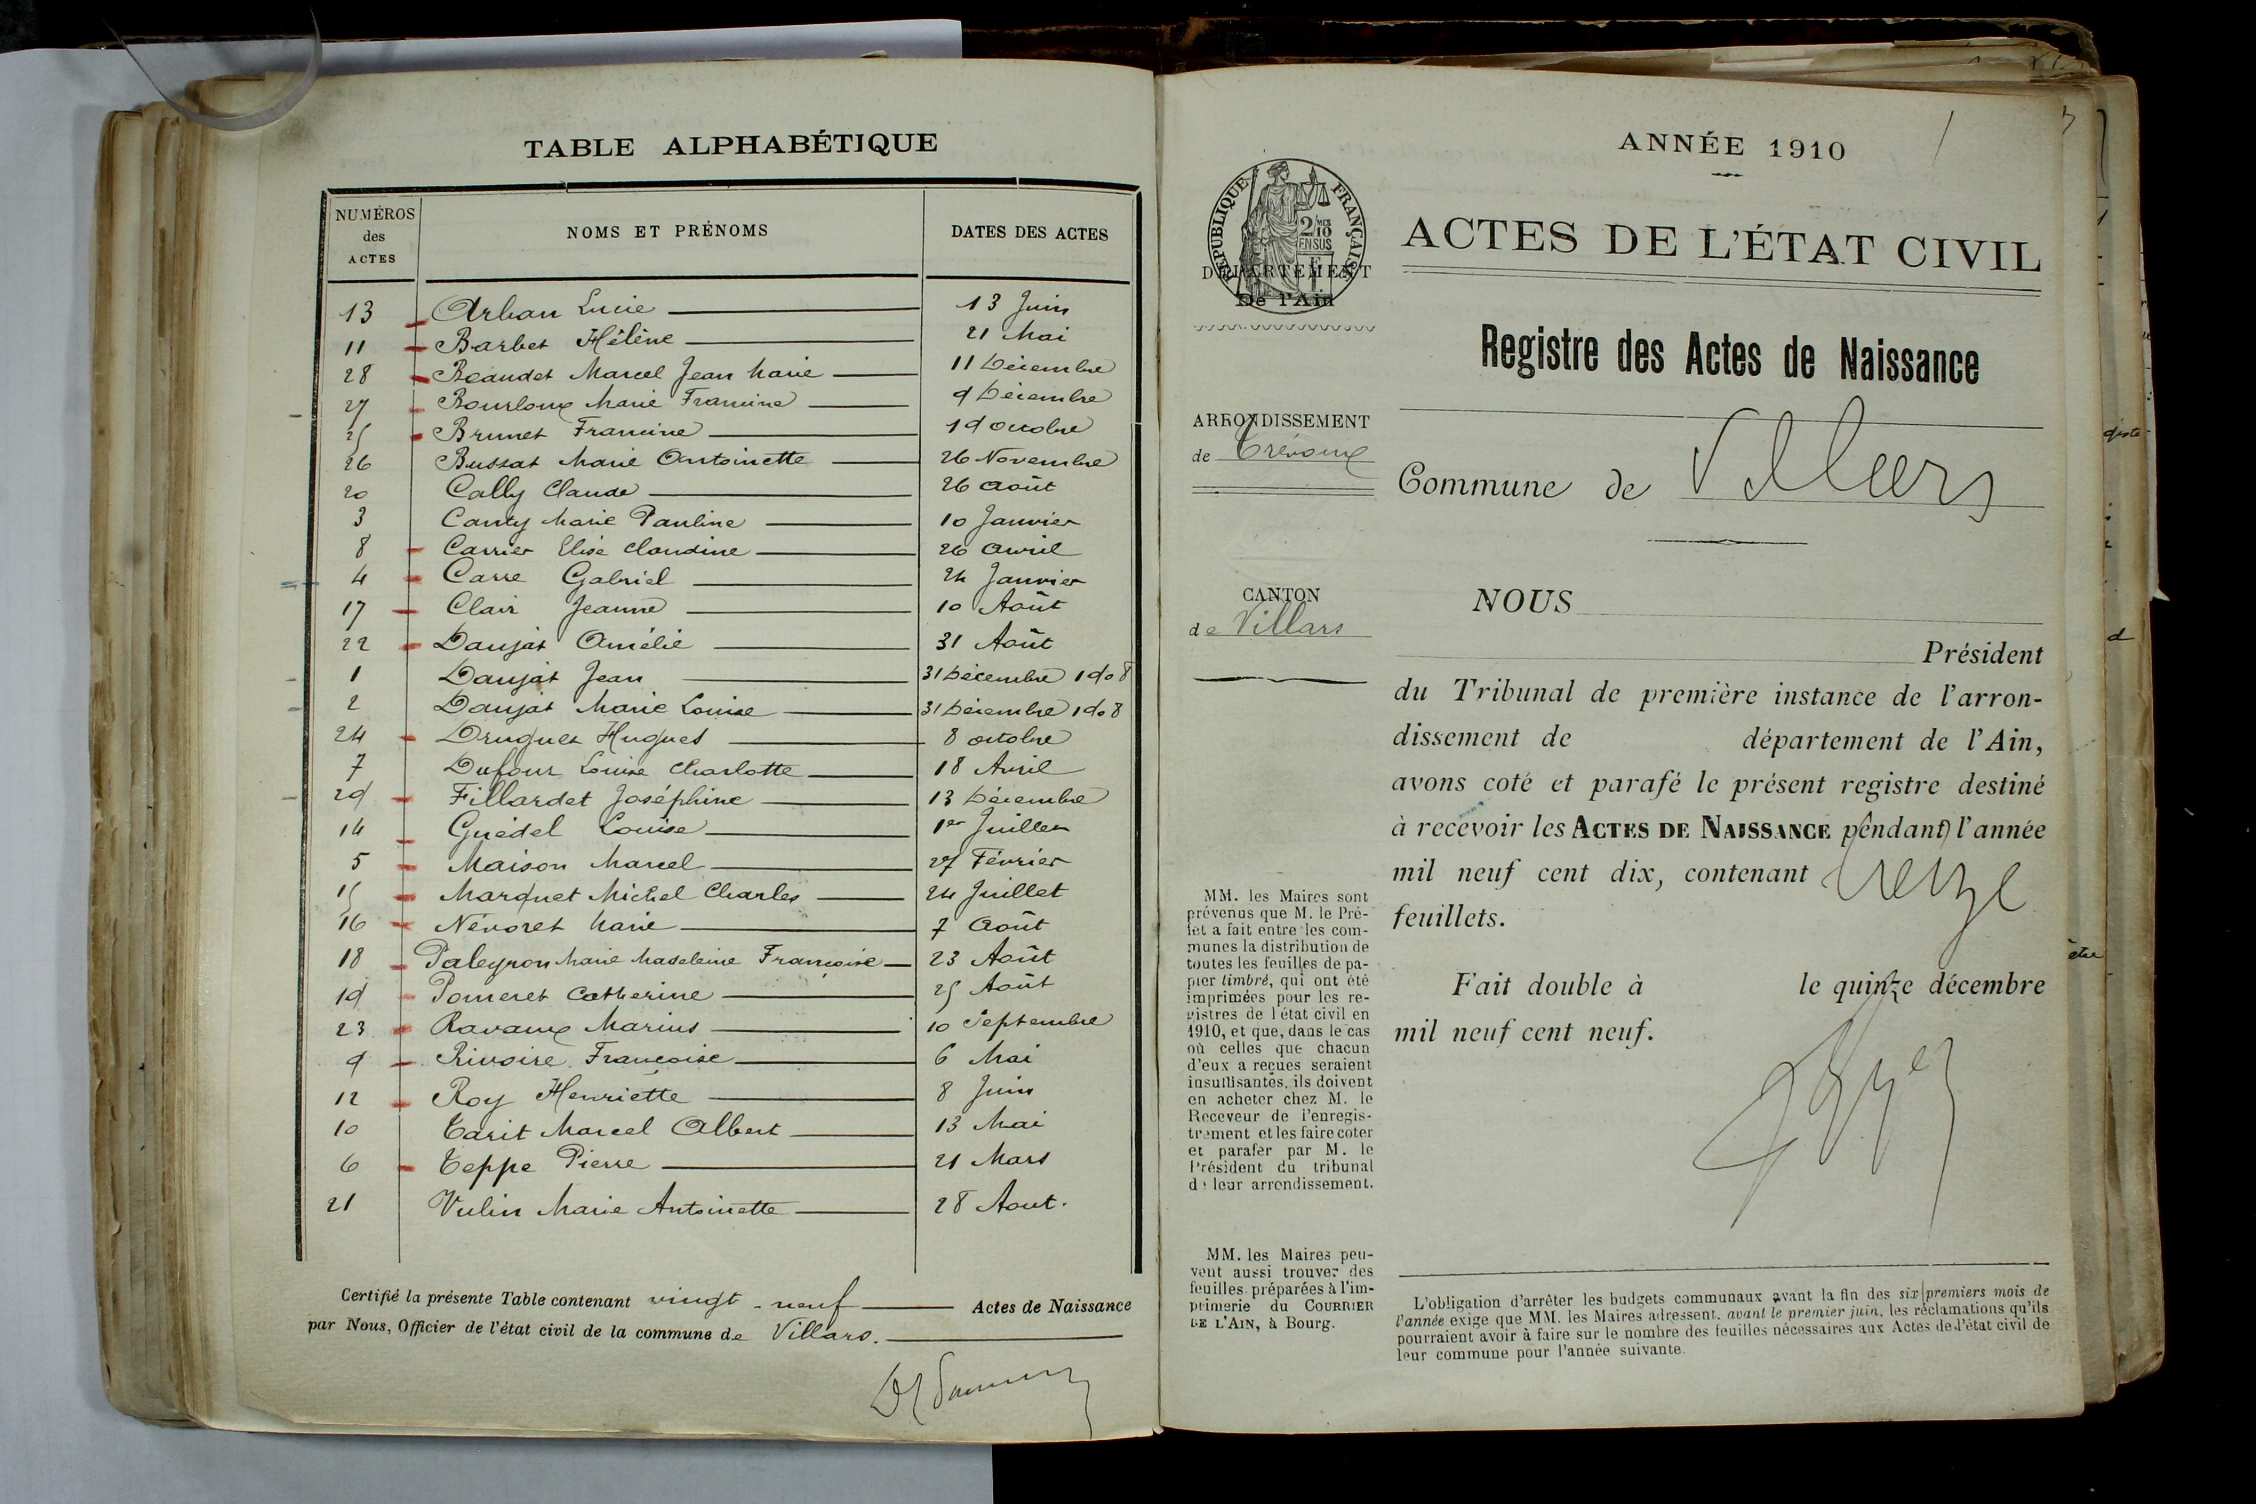 TABLE ALPHABÉTIQUE
NUMÉROS des ACTES NOMS ET PRÉNOMS DATES DES ACTES
13 Arban Lucie 13 Juin
11 Barbet Hélène 21 Mai
28 Beaudet Marcel Jean Marie 11 Décembre
27 Bourloux Marie Francine 9 Décembre
25 Brunet Francine 19 octobre
26 Bussat Marie Antoinette 26 Novembre
20 Cally Claude 26 août
3 Canty Marie Pauline 10 Janvier
8 Carrier Elise Claudine 26 avril
4 Carre Gabriel 24 Janvier
17 Clair Jeanne 10 Août
22 Daujat Amélie 31 Août
1 Daujat Jean 31 Décembre 1908
2 Daujat Marie Louise 31 Décembre 1908
24 Druguet Hugues 8 octobre
7 Dufour Louise Charlotte 18 Avril
29 Fillardet Joséphine 13 Décembre
14 Guédel Louise 1er Juillet
5 Maison Marcel 27 Février
15 Marquet Michel Charles 24 Juillet
16 Névoret Marie 7 Août
18 Paleyron Marie Madeleine Françoise 23 Août
19 Pomeret Catherine 25 Août
23 Ravaux Marius 10 Septembre
9 Rivoire Françoise 6 Mai
12 Roy Henriette 8 Juin
10 Tarit Marcel Albert 13 Mai
6 Teppe Pierre 21 Mars
21 Vulin Marie Antoinette 28 Aout.
Certifié la présente Table contenant vingt-neuf Actes de Naissance
par Nous, Officier de l'état civil de la commune de Villars.
ANNÉE 1910
RÉPUBLIQUE FRANÇAISE
2/10 EN SUS
DÉPARTEMENT
De l'Ain
ACTES DE L'ÉTAT CIVIL
Registre des Actes de Naissance
ARRONDISSEMENT
de Trévoux
Commune de Villars
CANTON
de Villars
NOUS
Président
du Tribunal de première instance de l'arron-
dissement de département de l'Ain,
avons coté et parafé le présent registre destiné
à recevoir les ACTES DE NAISSANCE pendant l'année
mil neuf cent dix, contenant treize
feuillets.
Fait double à le quinze décembre
mil neuf cent neuf.
MM. les Maires sont
prévenus que M. le Pré-
fet a fait entre les com-
munes la distribution de
toutes les feuilles de pa-
pier timbré, qui ont été
imprimées pour les re-
gistres de l'état civil en
1910, et que, dans le cas
où celles que chacun
d'eux a reçues seraient
insuffisantes, ils doivent
en acheter chez M. le
Receveur de l'enregis-
trement et les faire coter
et parafer par M. le
Président du tribunal
de leur arrondissement.
MM. les Maires peu-
vent aussi trouver des
feuilles préparées à l'im-
primerie du COURRIER
DE L'AIN, à Bourg.
L'obligation d'arrêter les budgets communaux avant la fin des six premiers mois de
l'année exige que MM. les Maires adressent, avant le premier juin, les réclamations qu'ils
pourraient avoir à faire sur le nombre des feuilles nécessaires aux Actes de l'état civil de
leur commune pour l'année suivante.